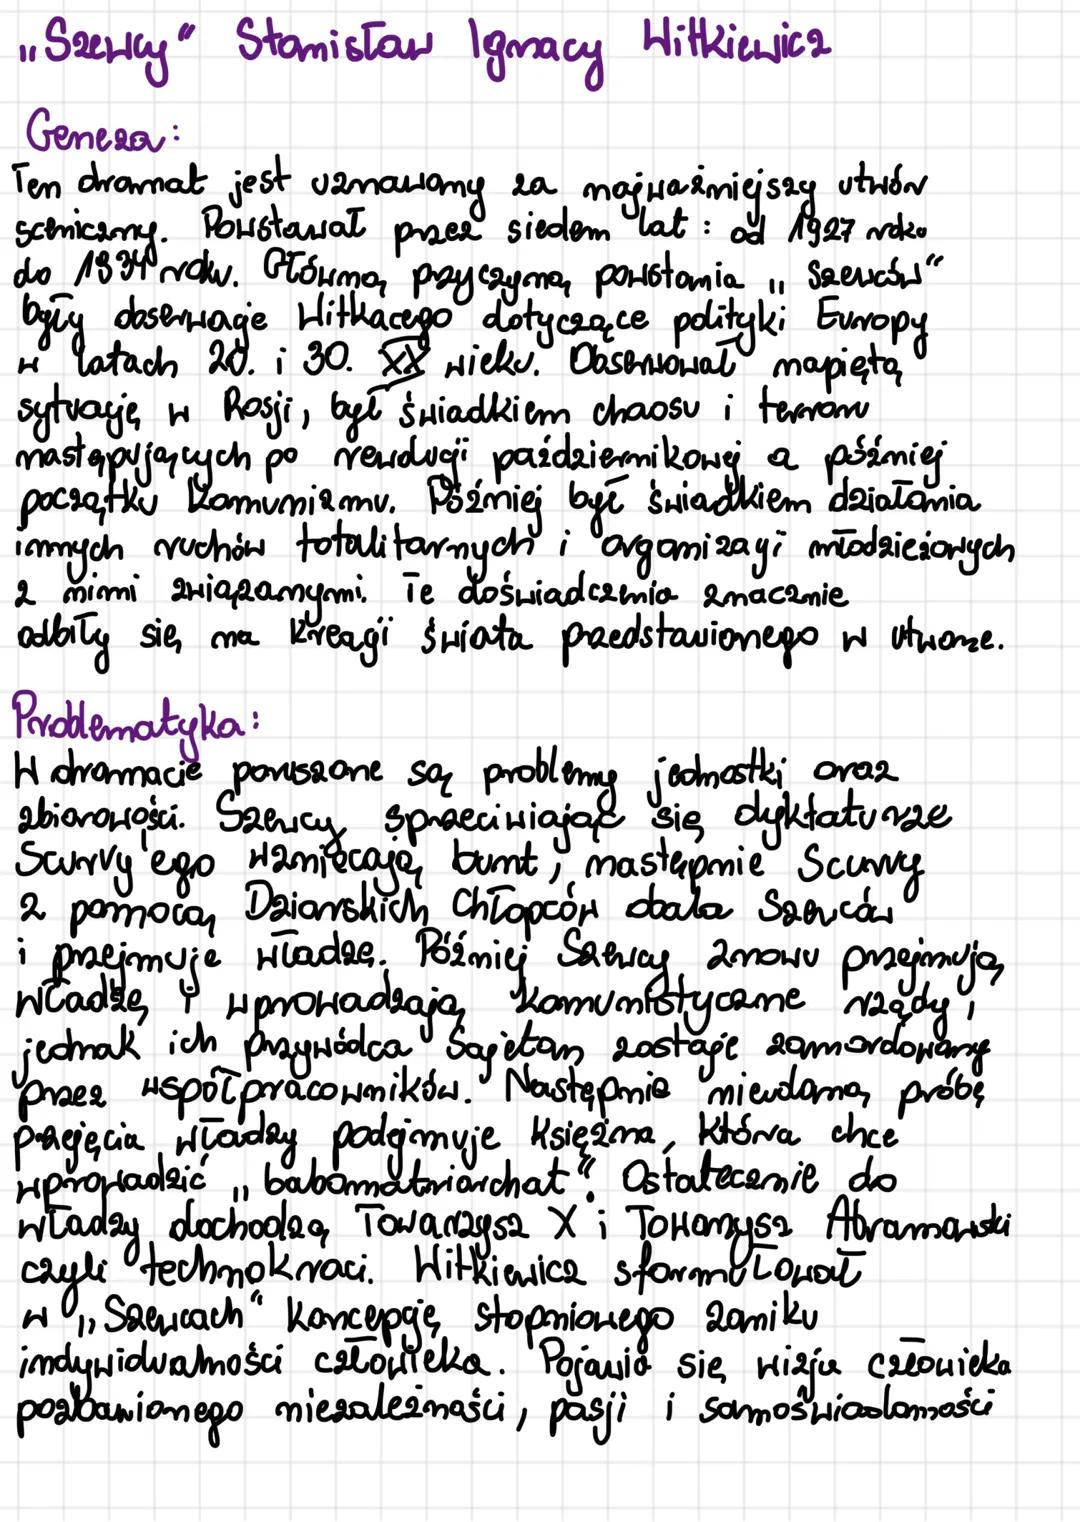 „Szewcy“ Stanisław Ignacy Witkiewicz
Geneza:
Ten dramat jest uznawany za najważniejszy utwór
sceniczny. Powstawał przez siedem lat : od 1927 roku
do 1934 roku. Główną przyczyną powstania „Szewców“
były obserwacje Witkacego dotyczące polityki Europy
w latach 20. i 30. XX wieku. Obserwował napiętą
sytuację w Rosji, był świadkiem chaosu i terroru
następujących po rewolucji październikowej a później
początku komunizmu. Później był świadkiem działania
innych ruchów totalitarnych i organizacji młodzieżowych
z nimi związanymi. Te doświadczenia znacznie
odbiły się na kreacji świata przedstawionego w utworze.
Problematyka:
W dramacie poruszane są problemy jednostki oraz
zbiorowości. Szewcy sprzeciwiając się dyktaturze
Scurvy'ego wzniecają bunt, następnie Scurvy
z pomocą Dziarskich Chłopców obala Szewców
i przejmuje władzę. Później Szewcy znowu przejmują
władzę i wprowadzają komunistyczne rządy,
jednak ich przywódca Sajetan zostaje zamordowany
przez współpracowników. Następnie nieudaną próbę
przejęcia władzy podejmuje Księżna, która chce
wprowadzić „babomatriarchat“. Ostatecznie do
władzy dochodzą Towarzysz X i Towarzysz Abramowski
czyli technokraci. Witkiewicz sformułował
w „Szewcach“ koncepcję stopniowego zaniku
indywidualności człowieka. Pojawia się wizja człowieka
pozbawionego niezależności, pasji i samoświadomości